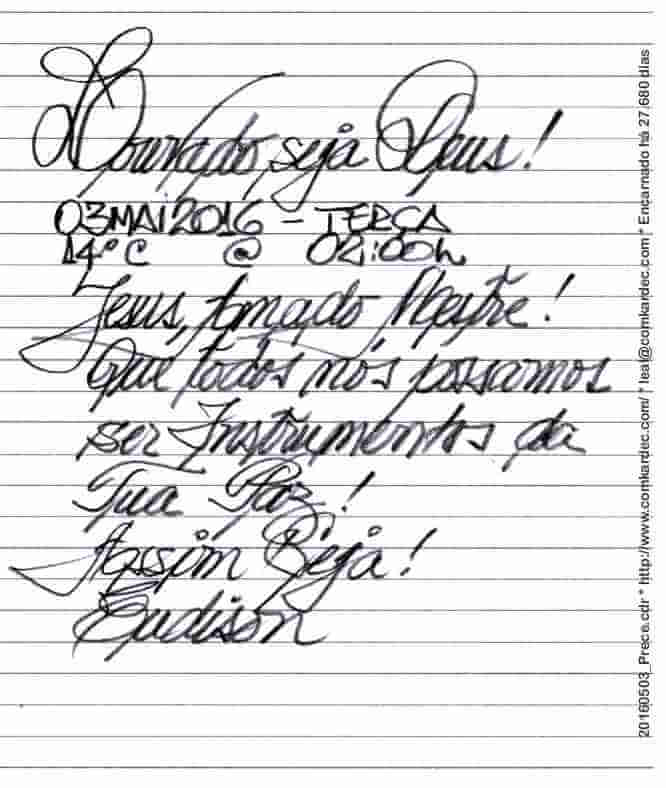 Louvado seja Deus!
03MAI2016 - TERÇA
14°C @ 02:00h
Jesus, Amado Mestre!
Que todos nós possamos
ser Instrumentos da
Tua Paz!
Assim Seja!
Eudison
20160503_Prece.cdr * http://www.comkardec.com/ * leal@comkardec.com * Encarnado há 27.680 dias